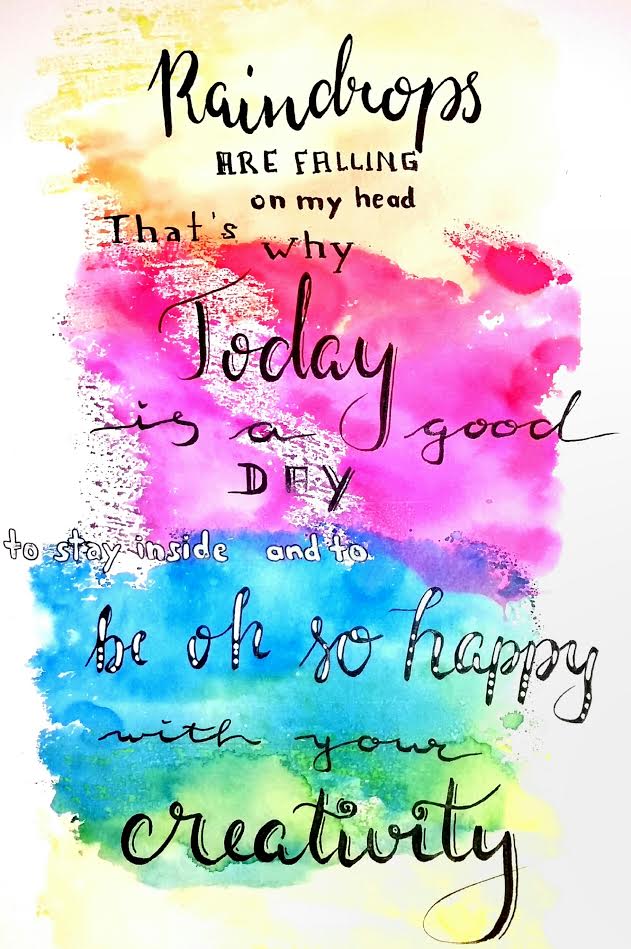 Raindrops
ARE FALLING
on my head
That's why
Today
is a good
DAY
to stay inside and to
be oh so happy
with your
creativity